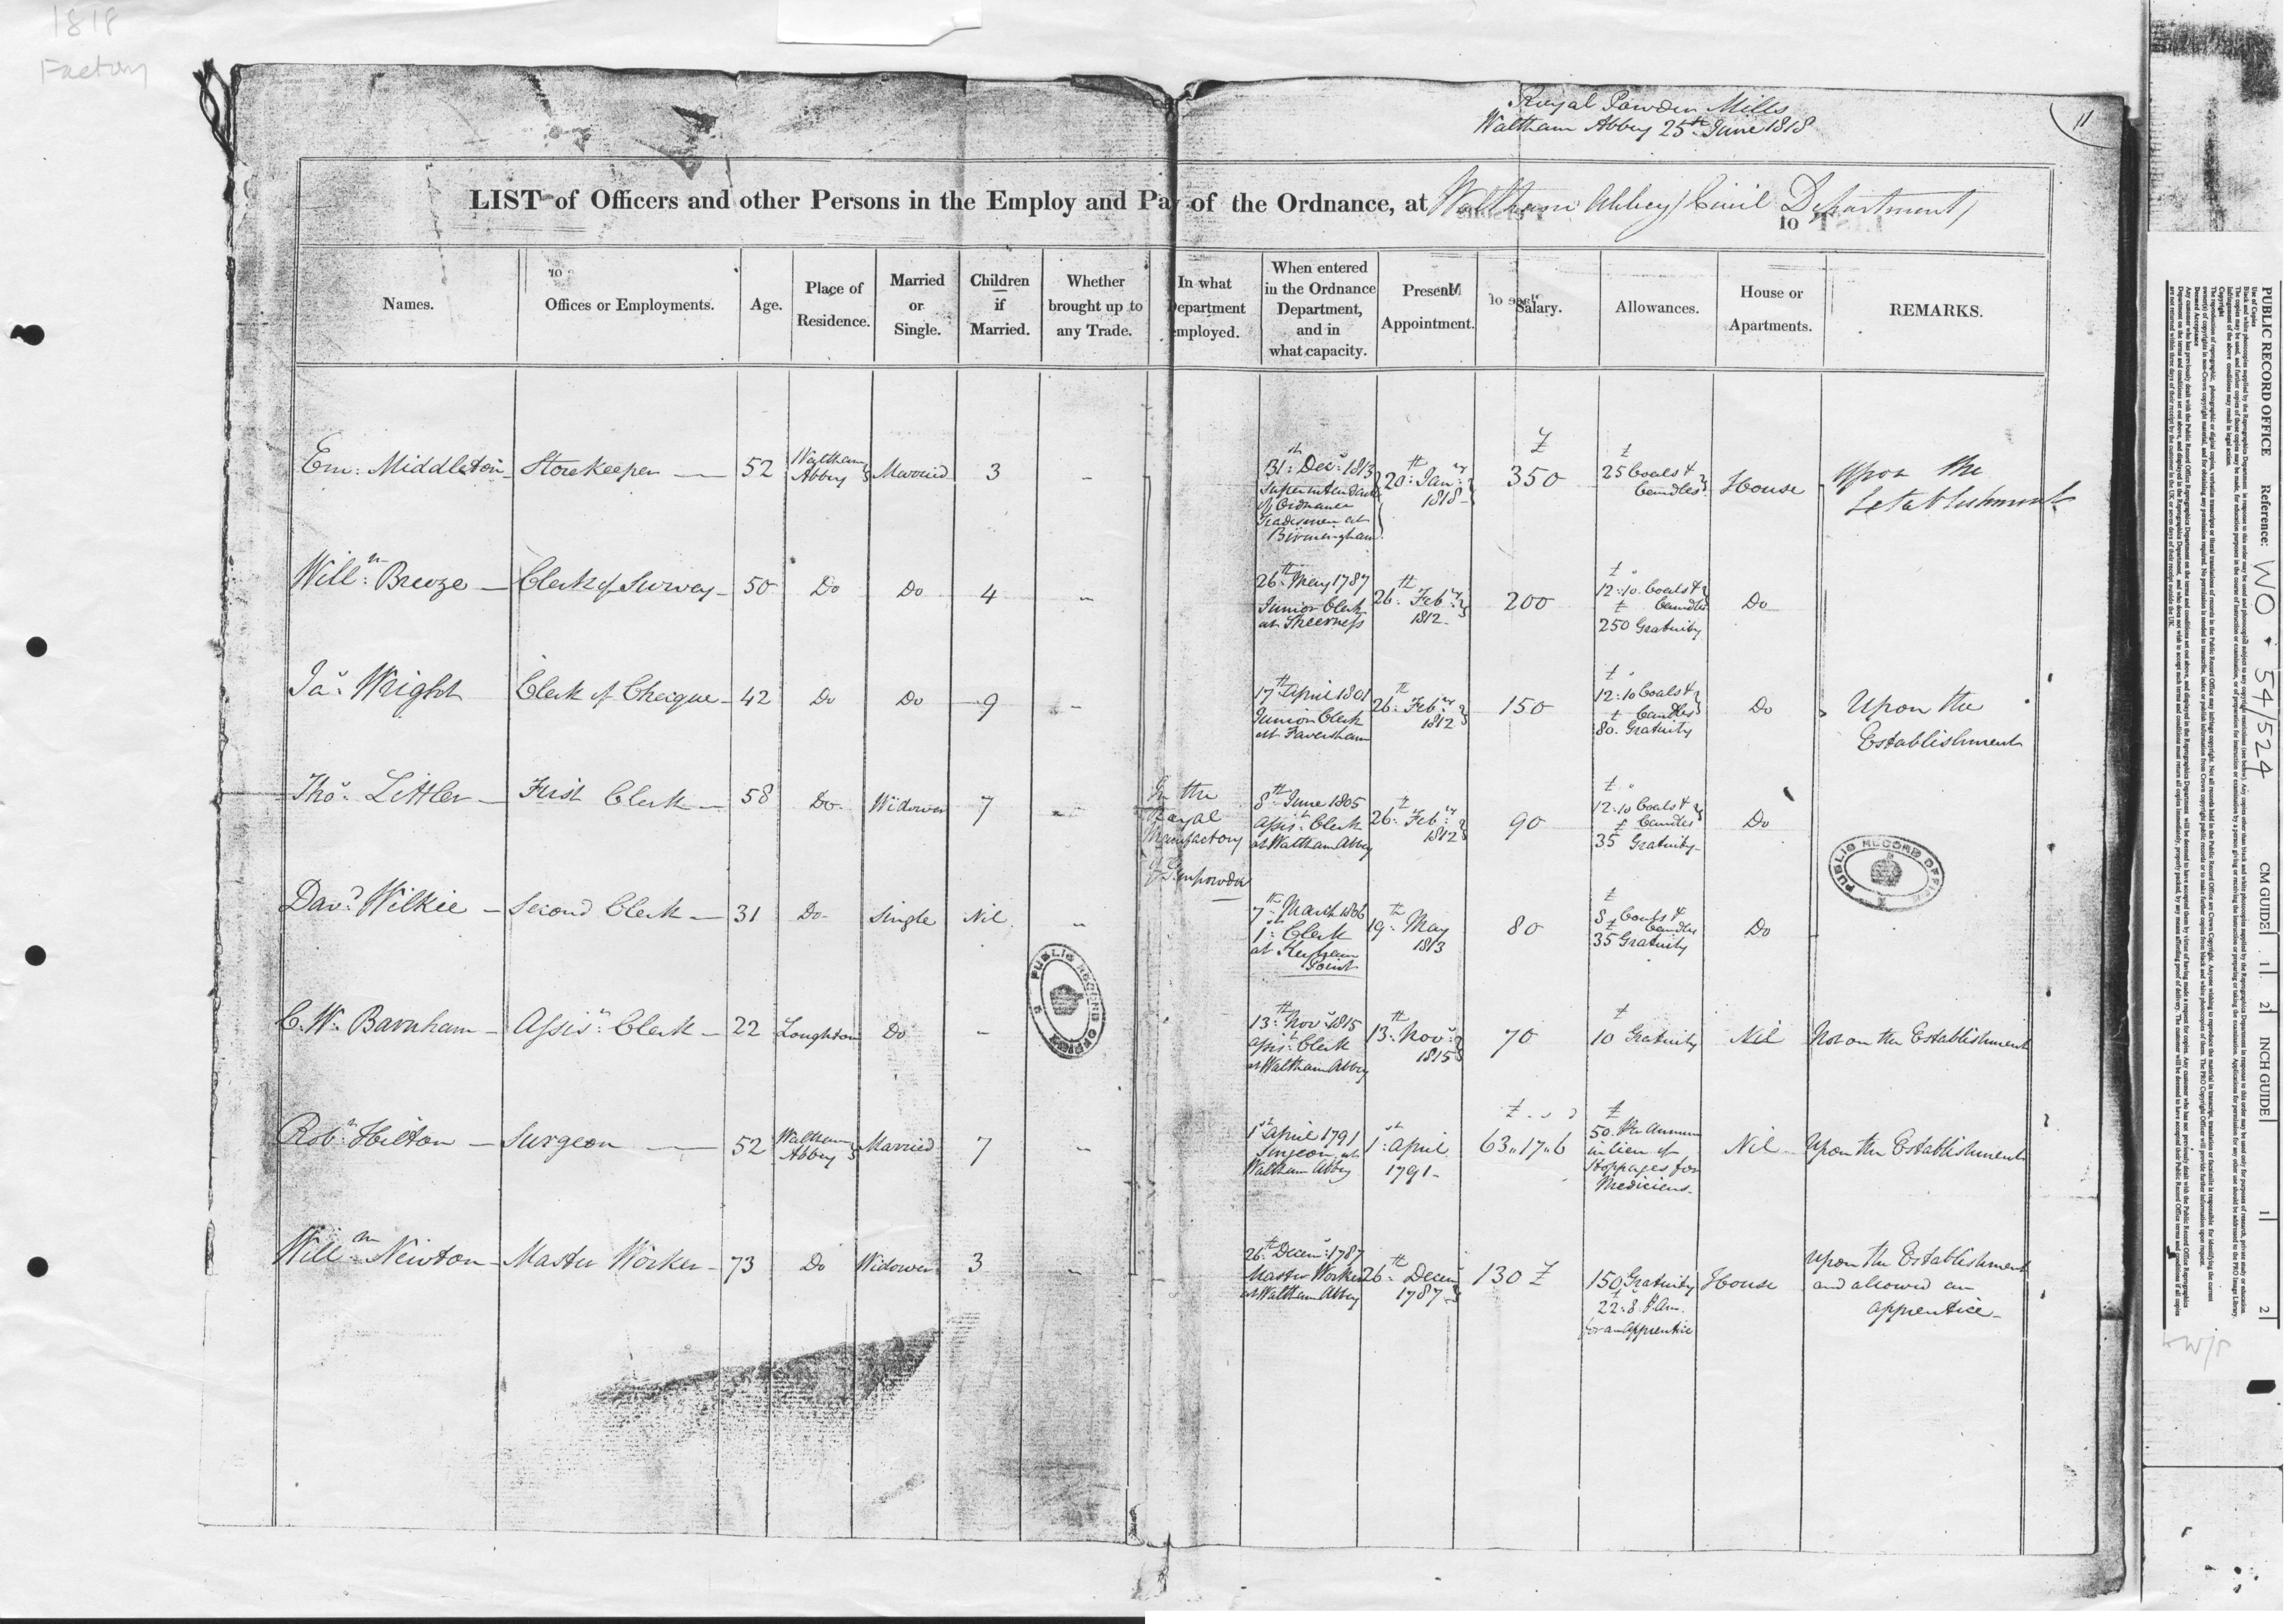 1818
Factory
Royal Powder Mills
Waltham Abbey 25th June 1818
11
LIST of Officers and other Persons in the Employ and Pay of the Ordnance, at Waltham Abbey (Civil Department)
Names.
Offices or Employments.
Age.
Place of
Residence.
Married
or
Single.
Children
if
Married.
Whether
brought up to
any Trade.
In what
Department
employed.
When entered
in the Ordnance
Department,
and in
what capacity.
Present
Appointment.
Salary.
Allowances.
House or
Apartments.
REMARKS.
Em: Middleton Storekeeper 52
Waltham
Abbey
Married 3 -
31st Decr 1813
Superintendant
of Ordnance
Tradesmen at
Birmingham
20th Jany
1818
£
350
£
25 Coals &
Candles
House
Upon the
Establishment
Willm Breeze Clerk of Survey 50 Do Do 4 -
26th May 1787
Junior Clerk
at Sheerness
26th Feby
1812
200
£
12:10 Coals &
£ Candles
250 Gratuity
Do
Jas Wright Clerk of Cheque 42 Do Do 9 -
17th April 1801
Junior Clerk
at Faversham
26th Feby
1812
150
£
12:10 Coals &
£ Candles
80. Gratuity
Do
Upon the
Establishment
Thos Littler First Clerk 58 Do Widower 7 -
In the
Royal
Manufactory
of Gunpowder
8th June 1805
Assist Clerk
at Waltham Abbey
26th Feby
1812
90
£
12:10 Coals &
£ Candles
35 Gratuity
Do
Davd Wilkie Second Clerk 31 Do Single Nil -
7th March 1806
1st Clerk
at
Point
19th May
1813
80
£
8 Coals &
£ Candles
35 Gratuity
Do
C. W. Barnham Assist Clerk 22 Loughton Do -
13th Novr 1815
Assist Clerk
at Waltham Abbey
13th Novr
1815
70
£
10 Gratuity
Nil
Not on the Establishment
Robt Hilton Surgeon 52
Waltham
Abbey
Married 7 -
1st April 1791
Surgeon at
Waltham Abbey
1st April
1791
£
63,,17,,6
£
50. Per Annum
in lieu of
Stoppages for
Mediciens
Nil
Upon the Establishment
Willm Newton Master Worker 73 Do Widower 3 -
26th Decemr 1787
Master Worker
at Waltham Abbey
26th Decemr
1787
130 £
150 Gratuity
£
22:8 P An.
for an Apprentice
House
Upon the Establishment
and allowed an
apprentice
PUBLIC RECORD OFFICE
PUBLIC RECORD OFFICE
PUBLIC RECORD OFFICE Reference: WO 54/524
CM GUIDE 1 2 INCH GUIDE 1 2